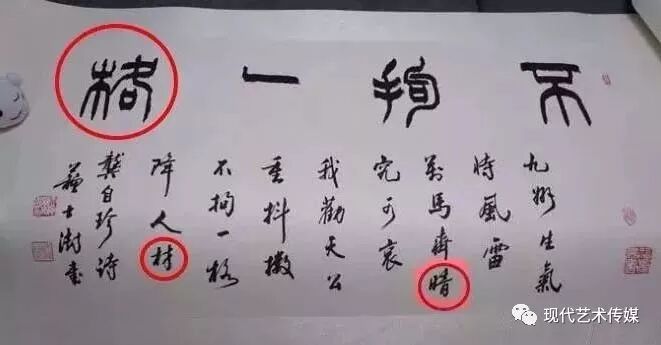 不拘一格
九州生氣
恃風雷
萬馬齊晴
究可哀
我勸天公
重抖擻
不拘一格
降人材
龔自珍詩
蘇士澍書
现代艺术传媒